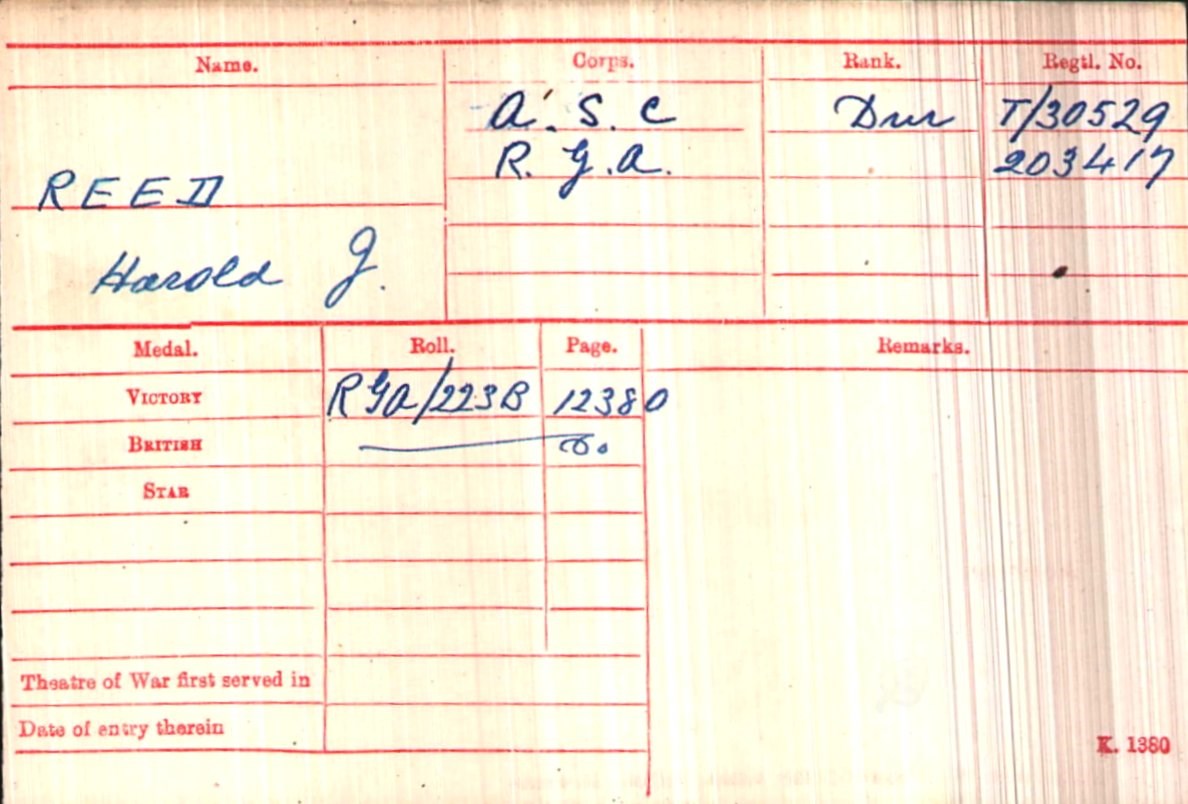 Name. Corps. Rank. Regtl. No.
A. S. C Dvr T/30529
R. G. A. 203417
REED
Harold J.
Medal. Roll. Page. Remarks.
VICTORY RGA/223B 12380
BRITISH Do
STAR
Theatre of War first served in
Date of entry therein
K. 1380